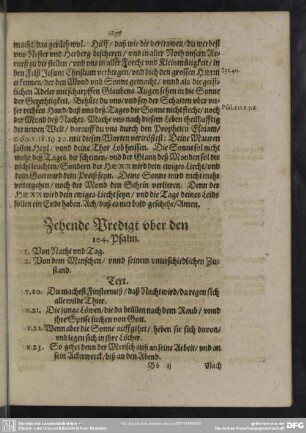 macht/das gerähts wol: Hülff/ daß wir dir vertrawen/ du werdest
uns Nester und Herberg bescheren/ und in aller Noth unsere Re-
vier zu dir stellen/ und uns in aller Forcht und Kleinmütigkeit/ in
den Felß Jesum Christum verbergen/ und dich den grossen HErrn
erkennen/ der den Mond und Sonne gemacht/ unnd als die geist-
lichen Adeler mit scharpffen Glaubens Augen sehen in die Sonne
der Gerechtigkeit. Behüte du uns/ und sey der Schatten uber un-
ser rechten Hand/ daß uns deß Tages die Sonne nicht steche/ noch
der Mond deß Nachts. Mache uns nach diesem Leben theilhafftig
der newen Welt/ darauff du uns durch den Propheten Esaiam/
c.60.v.18.19.20. mit diesen Worten vertröstest: Deine Mauren
sollen Heyl/ unnd deine Thor Lob heissen. Die Sonne sol nicht
mehr deß Tages dir scheinen/ und der Glantz deß Monden sol dir
nicht leuchten/ Sondern der HErr wird dein ewiges Liecht/ und
dein Gott wird dein Preiß seyn. Deine Sonne wird nicht mehr
untergehen/ noch der Mond den Schein verlieren. Denn der
HErr wird dein ewiges Liecht seyn/ und die Tage deines Leides
sollen ein Ende haben. Ach/ daß es nur bald geschehe/ Amen.
Syr.40.
Psal.121.v.5.6.
Zehende Predigt uber den
104. Psalm.
1. Von Nacht und Tag.
2. Von dem Menschen/ unnd seinem unterschiedlichen Zu-
stand.
Text.
v.20. Du machest Finsternuß/ daß Nacht wird/ da regen sich
alle wilde Thier.
v.21. Die junge Löwen/ die da brüllen nach dem Raub/ unnd
ihre Speise suchen von Gott.
v.22. Wenn aber die Sonne auffgehet/ heben sie sich davon/
und legen sich in ihre Löcher.
v.23. So gehet denn der Mensch auß an seine Arbeit/ und an
sein Ackerwerck/ biß an den Abend.
Nach